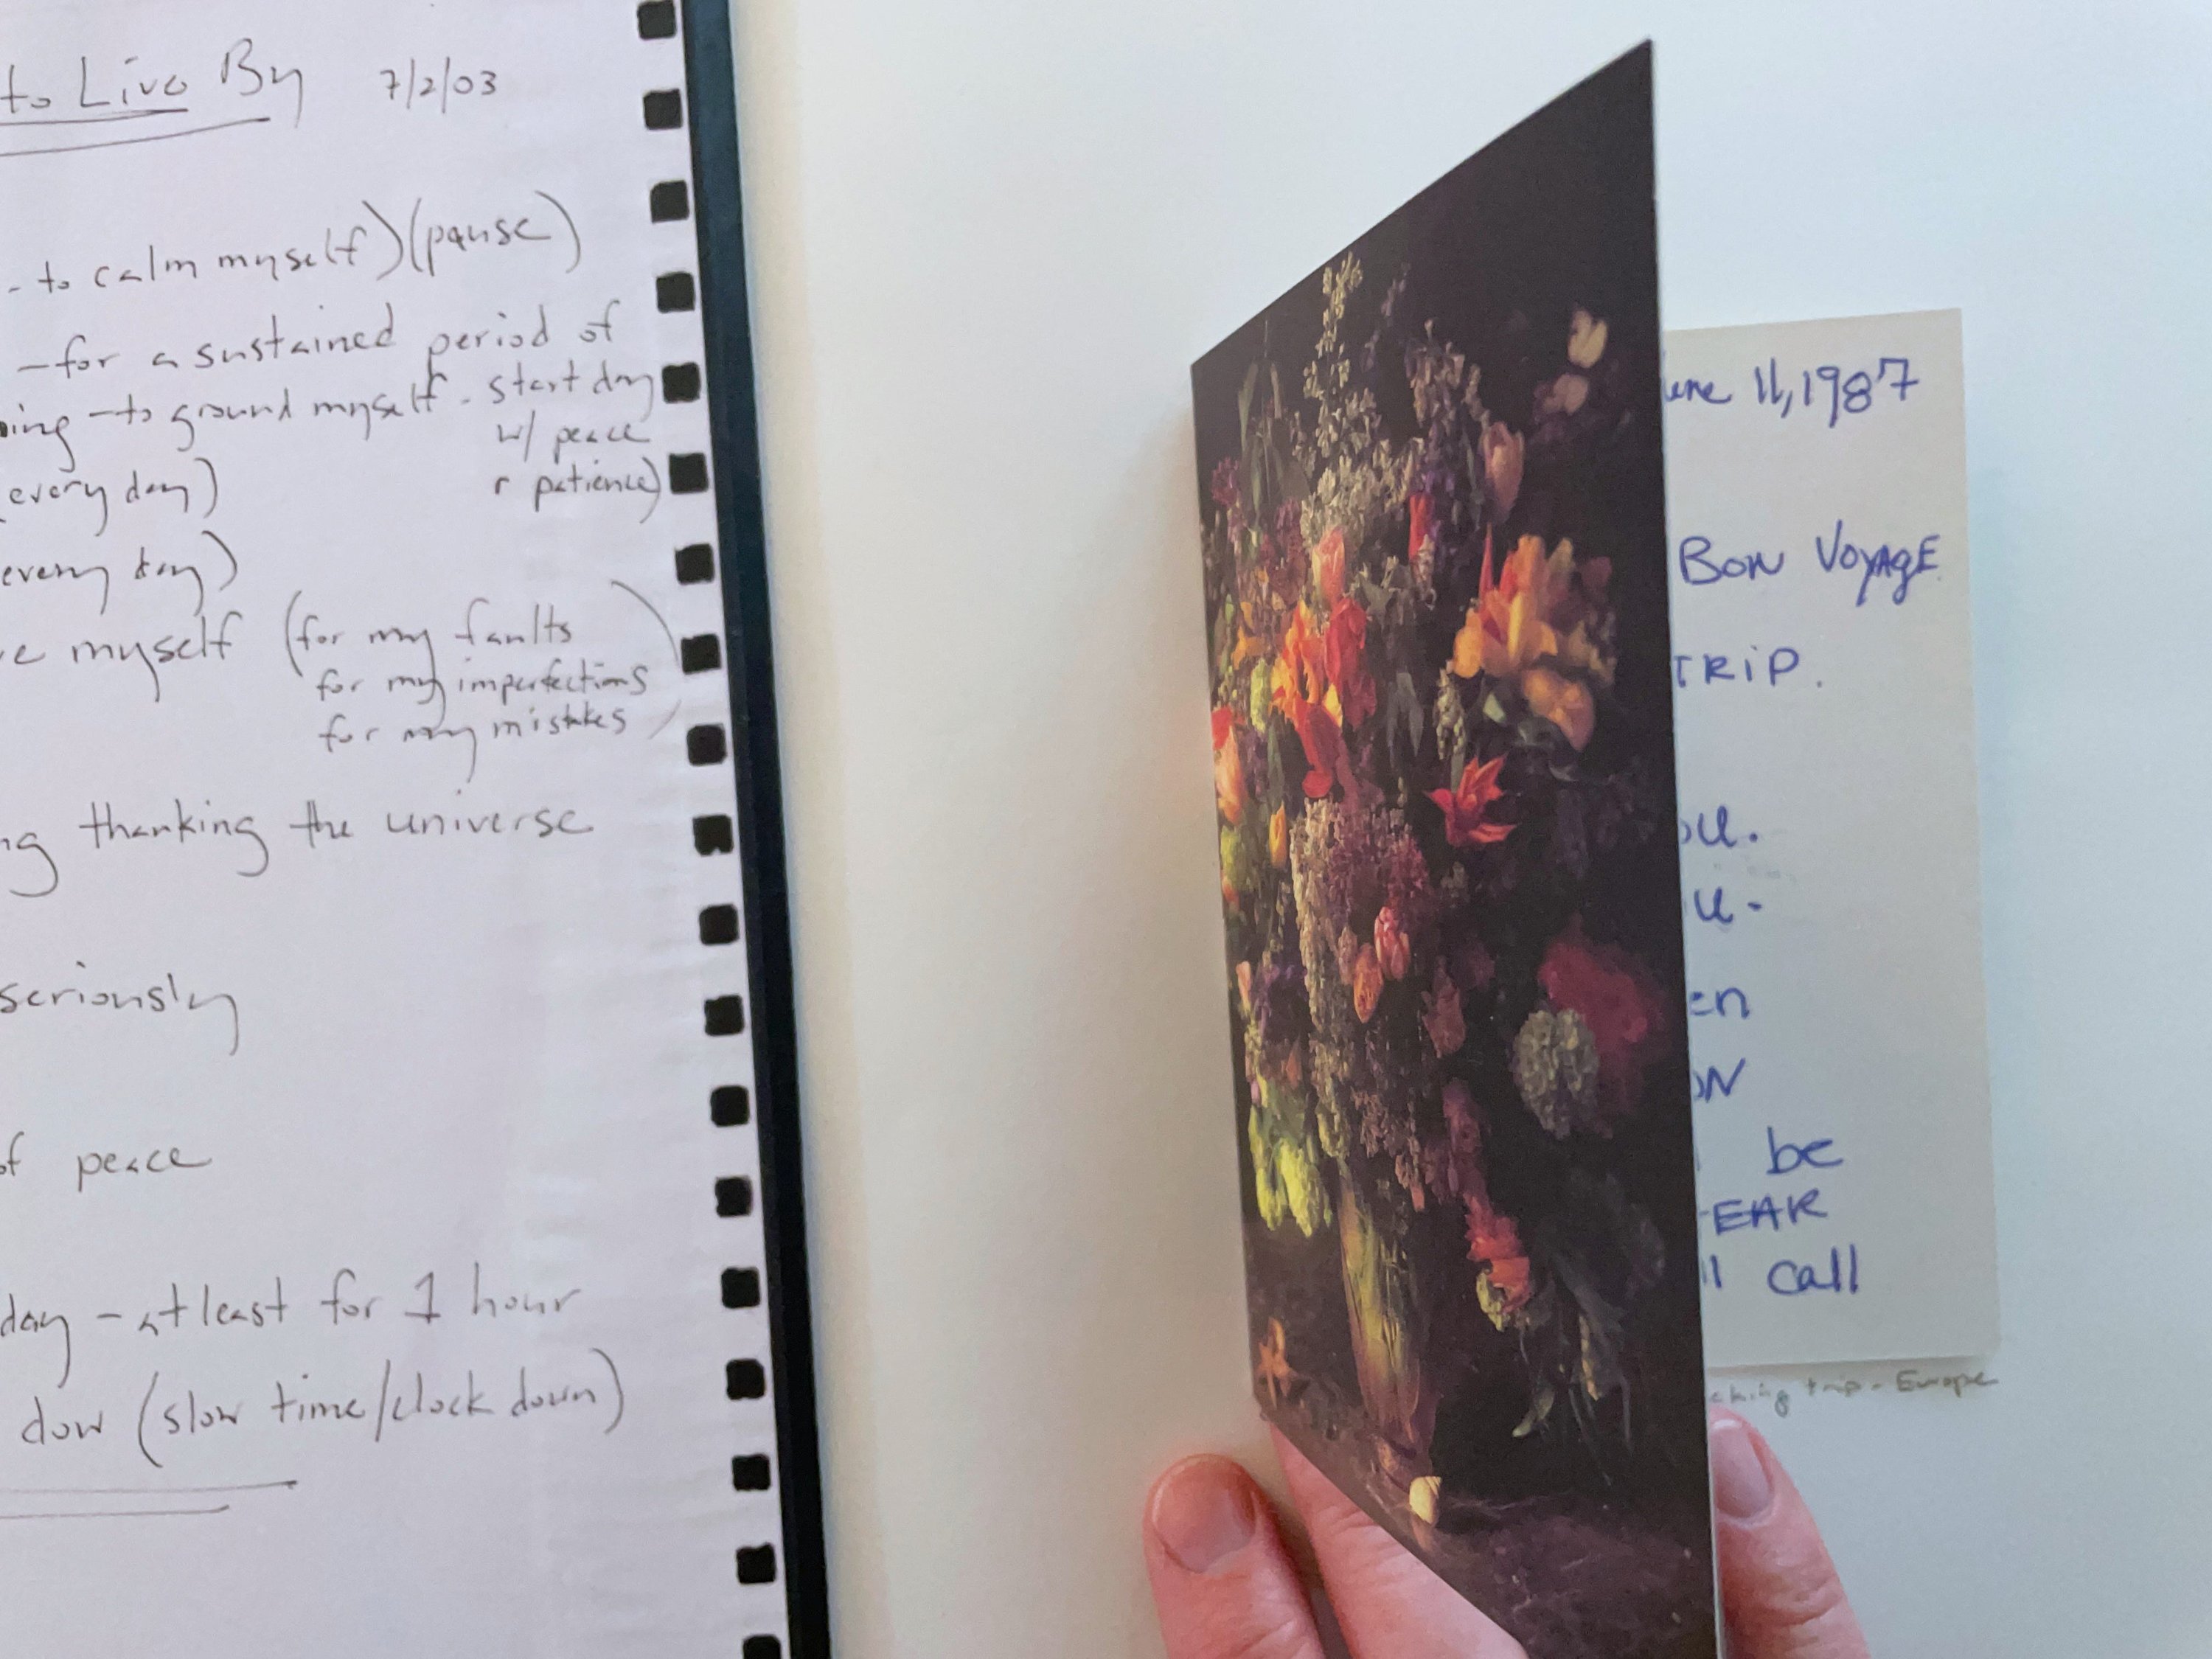 to Live By 7/2/03
- to calm myself) (pause)
- for a sustained period of
ing - to ground myself - start day
w/ peace
r patience)
(every day)
every day)
e myself (for my faults
for my imperfections
for my mistakes
ng thanking the universe
seriously
of peace
day - at least for 1 hour
dow (slow time/clock down)
une 11, 1987
BON VOYAGE
TRIP.
ou.
u -
en
ON
be
EAR
ll call
cking trip - Europe